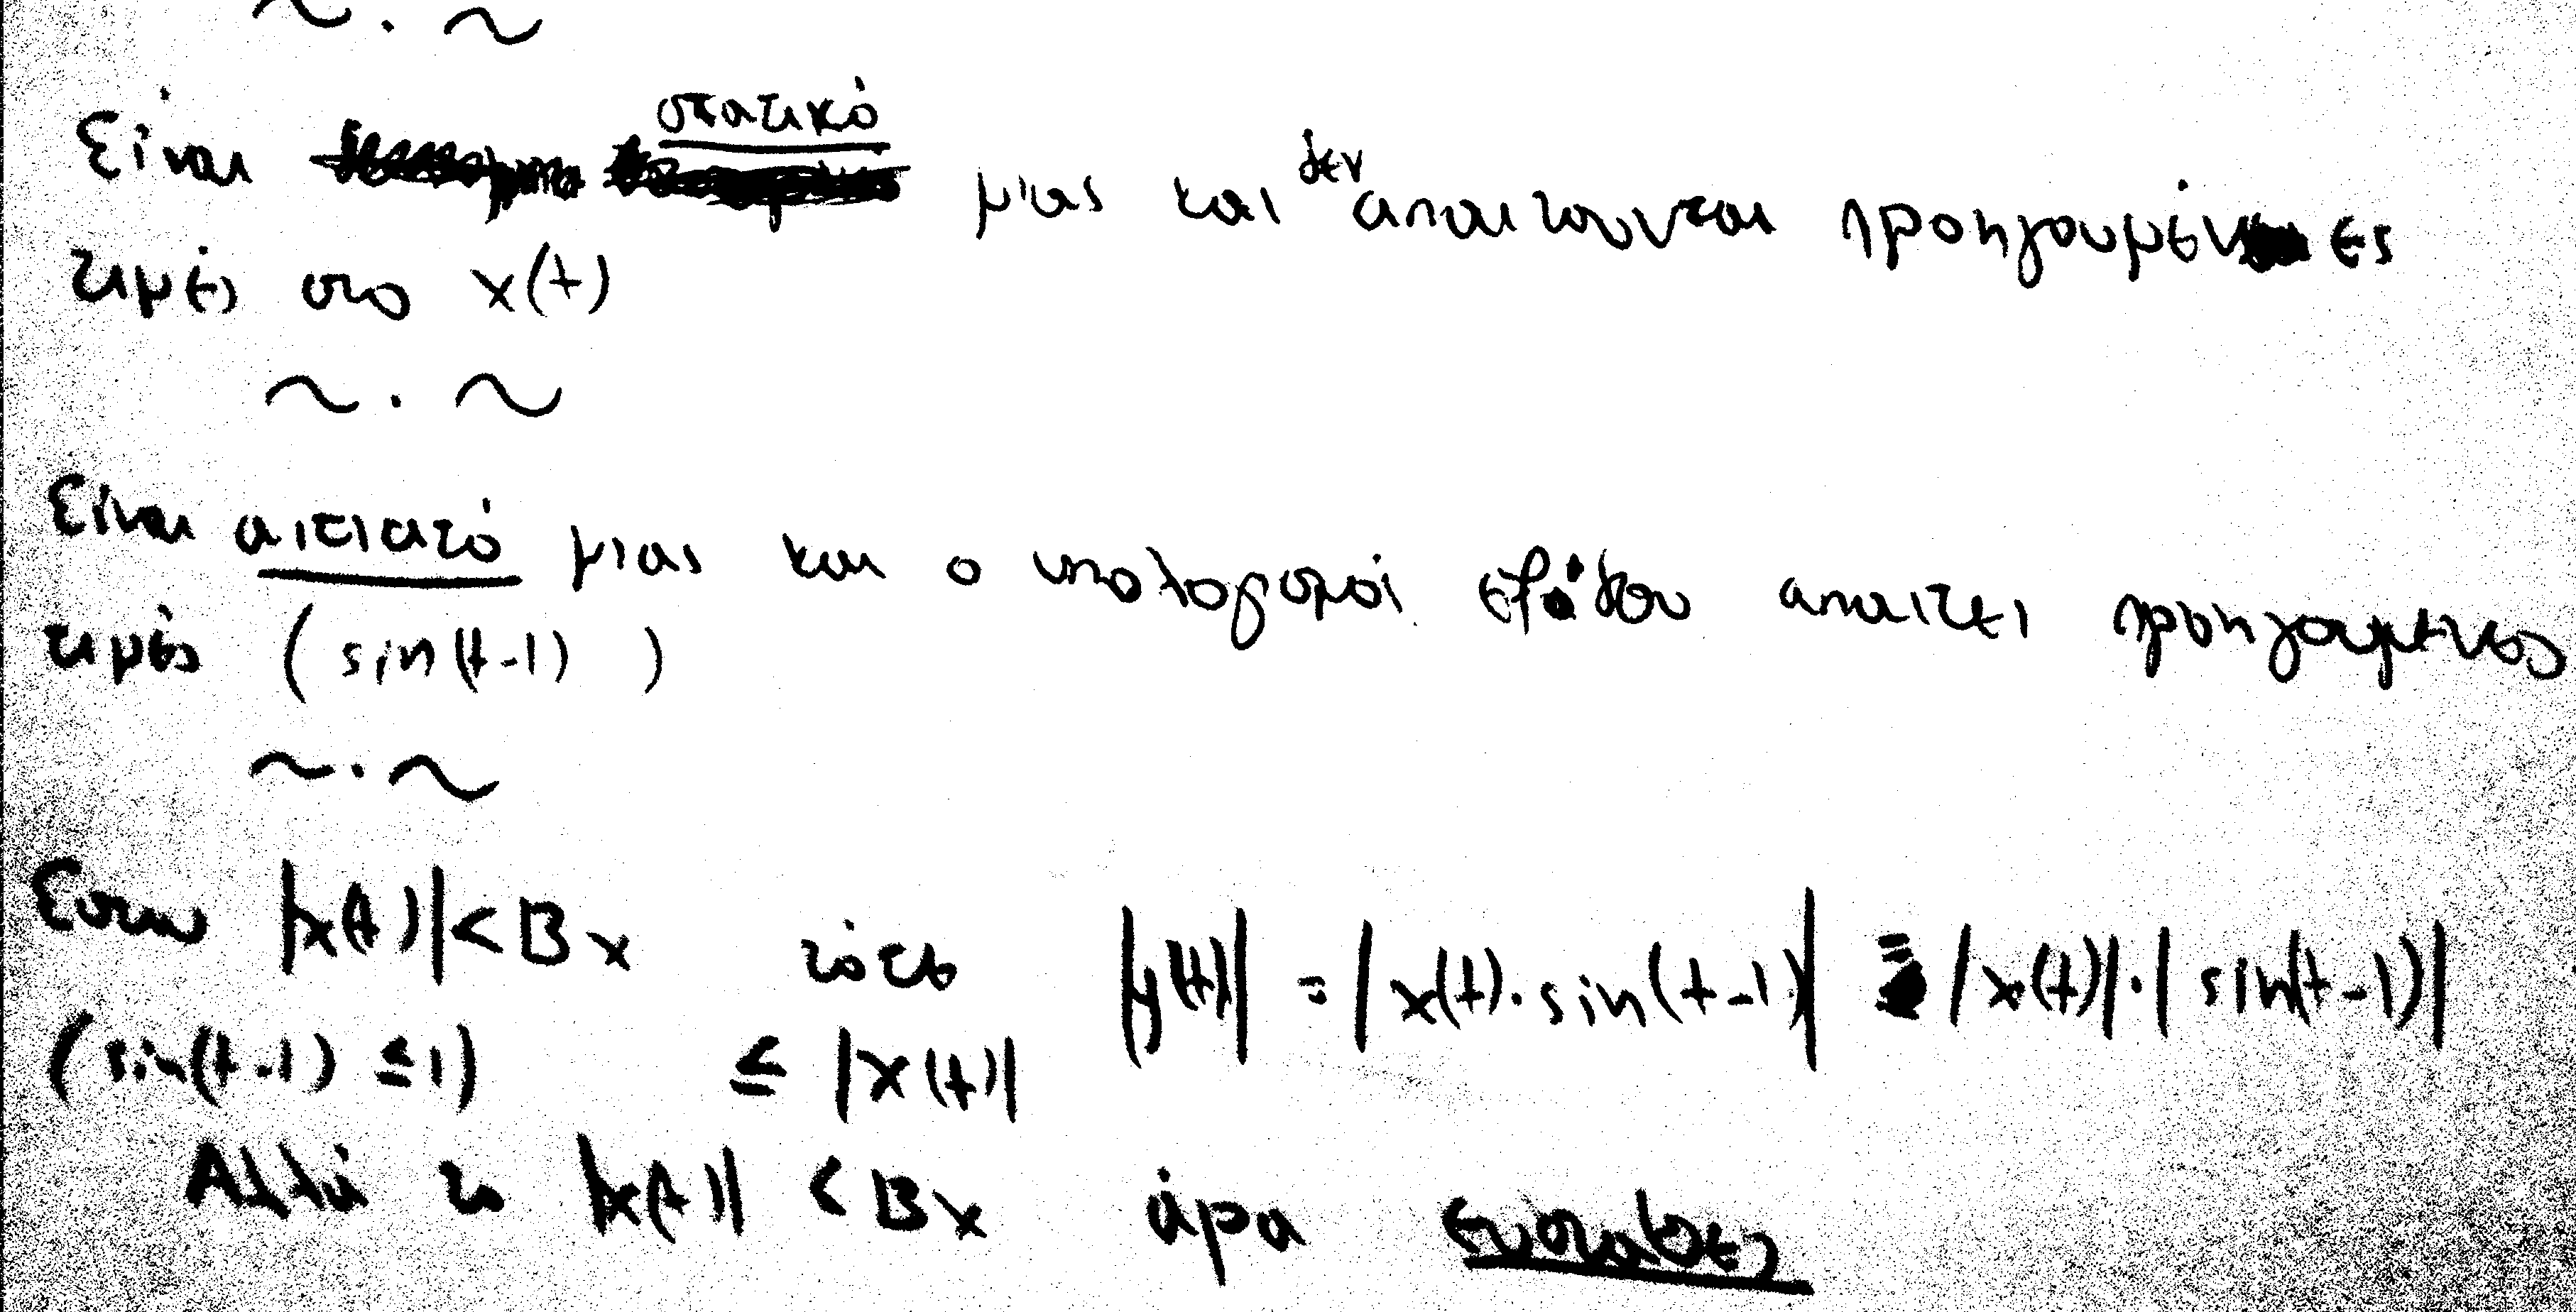 ~ . ~
Είναι στατικό μιας και δεν απαιτουνται προηγουμένες
τιμές στο x(t)
~ . ~
Είναι αιτιατό μιας και ο υπολογισμοί εξόδου απαιτει προηγουμενες
τιμές (sin(t-1) )
~ . ~
Εστω |x(t)| < Bx τότε |y(t)| = |x(t)·sin(t-1)| = |x(t)|·|sin(t-1)|
(sin(t-1) ≤ 1) ≤ |x(t)|
Αλλά το |x(t)| < Bx άρα ευσταθες